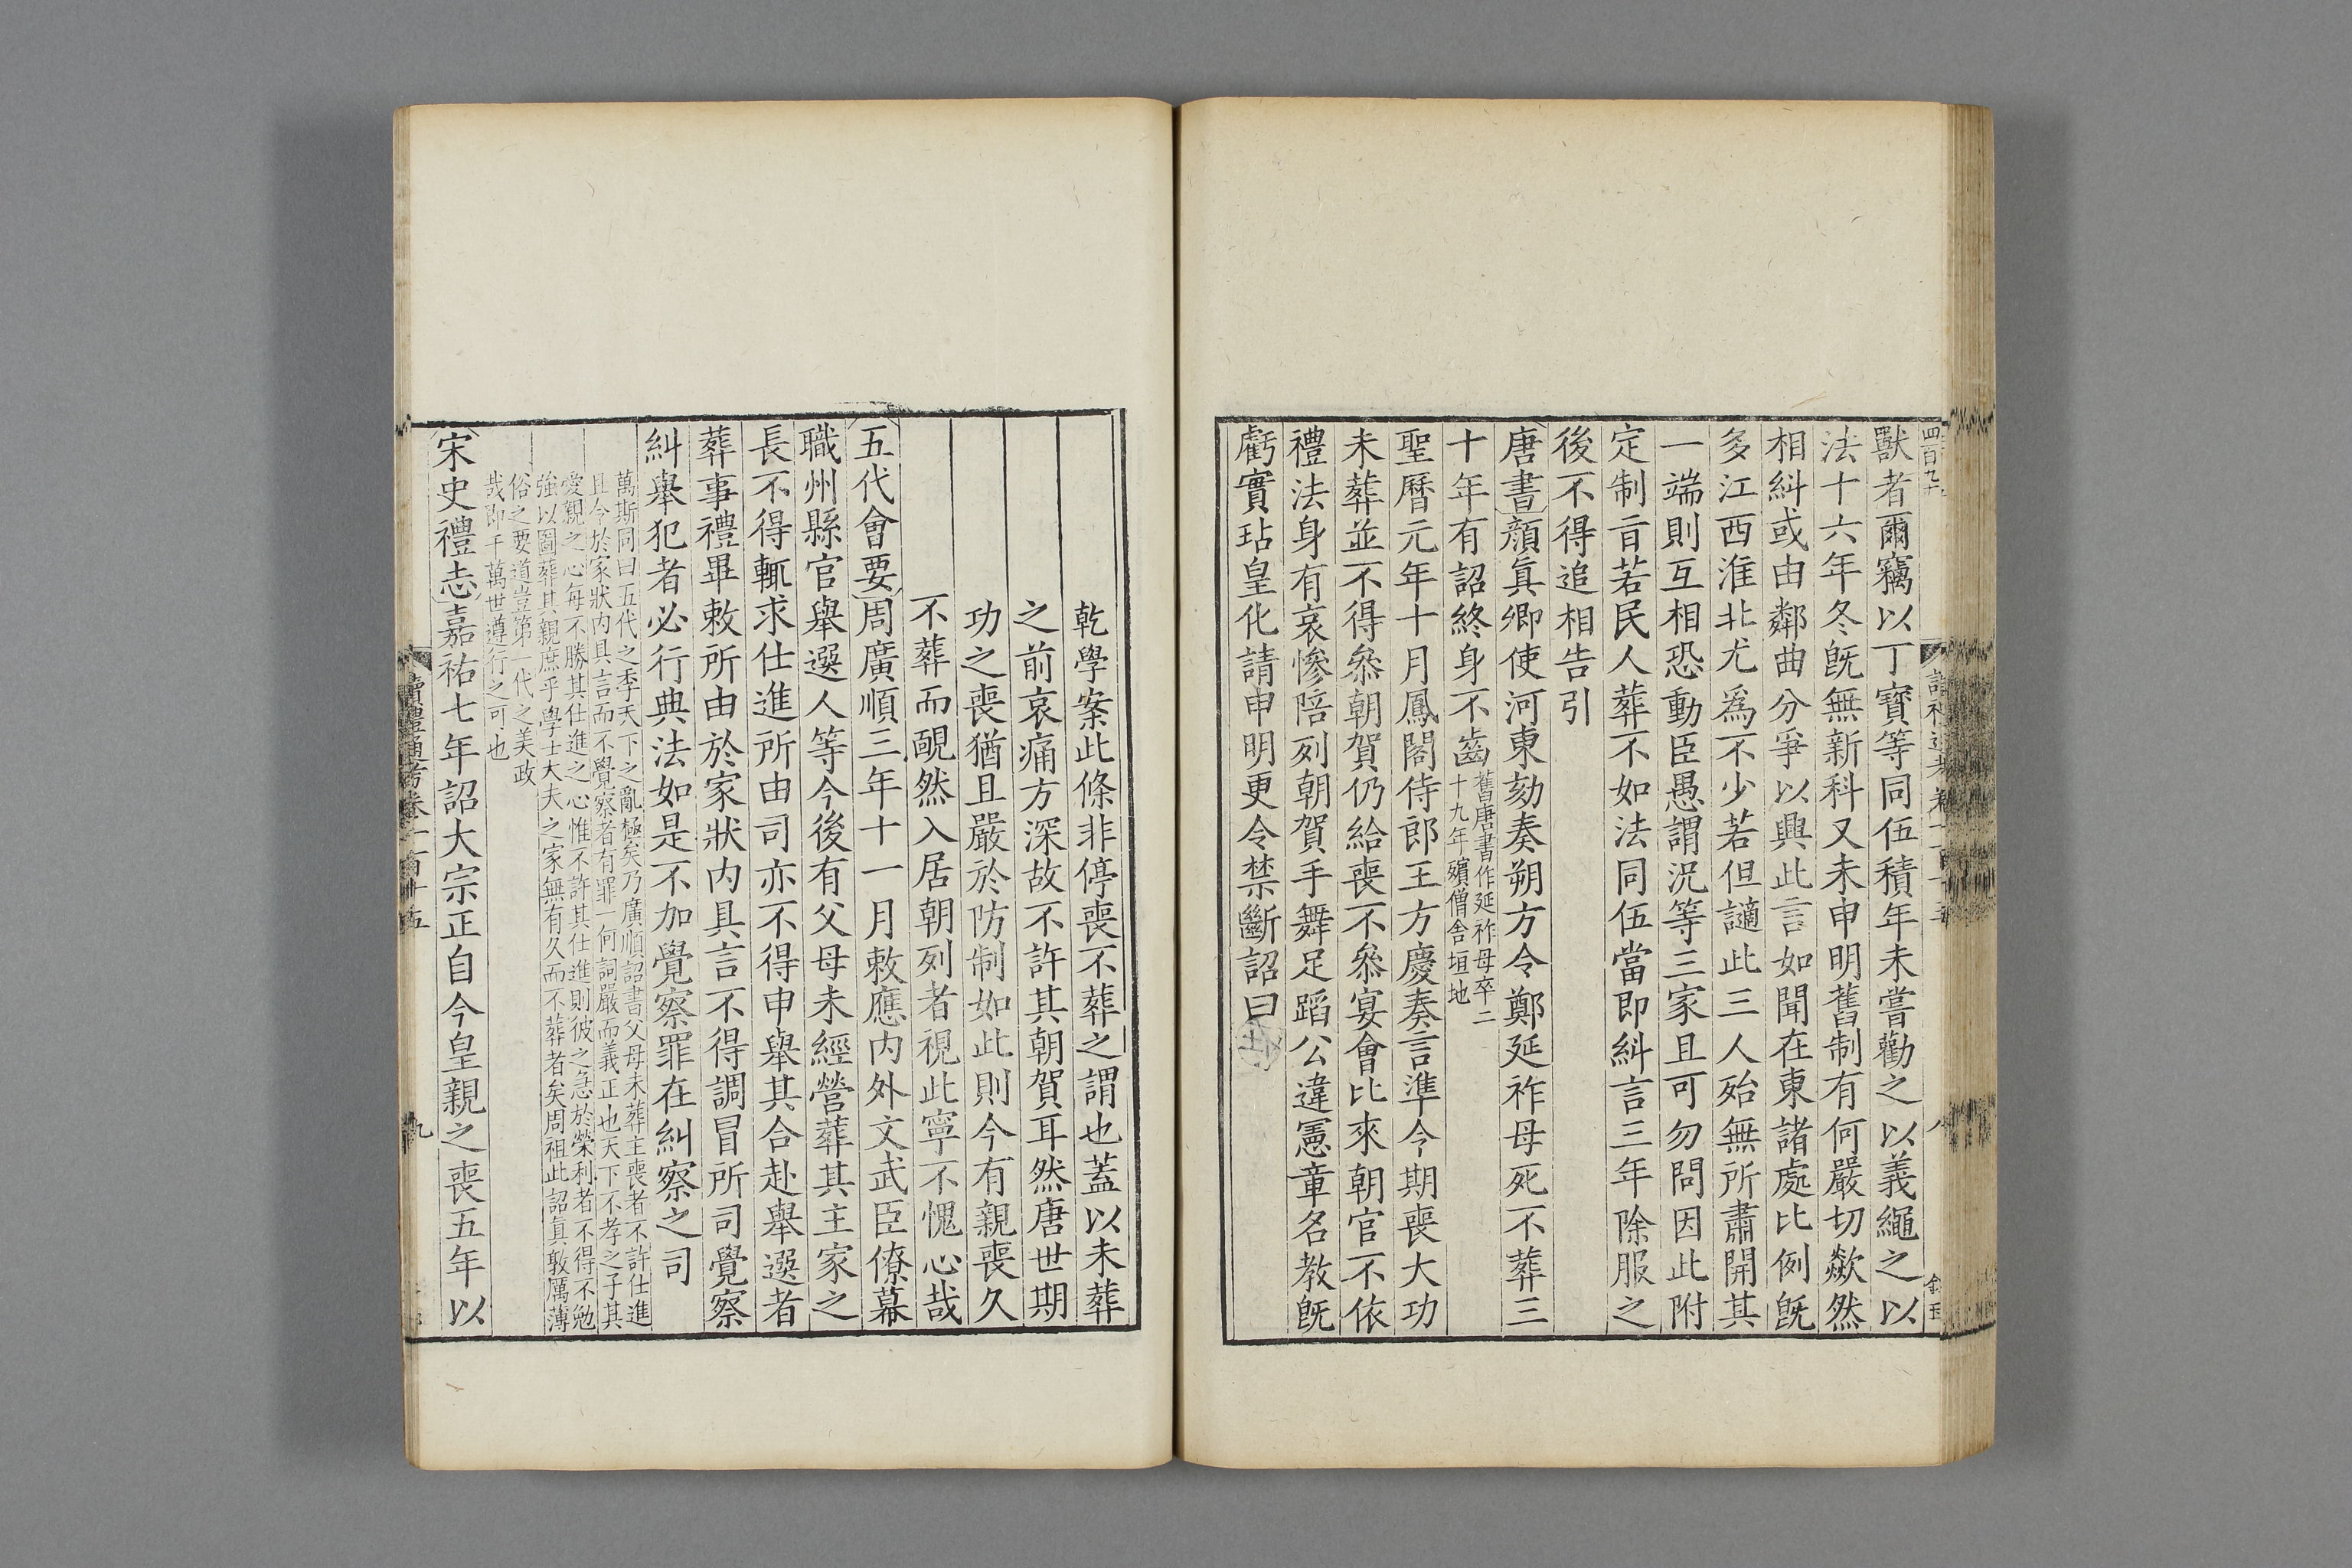 獸者爾竊以丁寳等同伍積年未嘗勸之以義繩之以
法十六年冬旣無新科又未申明舊制有何嚴切歘然
相糾或由鄰曲分爭以興此言如聞在東諸處比例旣
多江西淮北尤爲不少若但讁此三人殆無所肅開其
一端則互相恐動臣愚謂況等三家且可勿問因此附
定制旨若民人葬不如法同伍當即糾言三年除服之
後不得追相告引
唐書顔眞卿使河東劾奏朔方令鄭延祚母死不葬三
十年有詔終身不齒
舊唐書作延祚母卒二
十九年殯僧舍垣地
聖曆元年十月鳳閣侍郎王方慶奏言準令期喪大功
未葬並不得叅朝賀仍給喪不叅宴會比來朝官不依
禮法身有哀慘陪列朝賀手舞足蹈公違憲章名教旣
虧實玷皇化請申明更令禁斷詔曰
乾學案此條非停喪不葬之謂也蓋以未葬
之前哀痛方深故不許其朝賀耳然唐世期
功之喪猶且嚴於防制如此則今有親喪久
不葬而靦然入居朝列者視此寧不愧心哉
五代會要周廣順三年十一月敕應内外文武臣僚幕
職州縣官舉選人等今後有父母未經營葬其主家之
長不得輒求仕進所由司亦不得申舉其合赴舉選者
葬事禮畢敕所由於家狀内具言不得調冒所司覺察
糾舉犯者必行典法如是不加覺察罪在糾察之司
萬斯同曰五代之季天下之亂極矣乃廣順詔書父母未葬主喪者不許仕進
且令於家狀内具言而不覺察者有罪一何詞嚴而義正也天下不孝之子其
愛親之心每不勝其仕進之心惟不許其仕進則彼之急於榮利者不得不勉
強以圖葬其親庶乎學士大夫之家無有久而不葬者矣周祖此詔眞敦厲薄
俗之要道豈第一代之美政
哉即千萬世遵行之可也
宋史禮志嘉祐七年詔大宗正自今皇親之喪五年以
讀禮通考卷一百十五
九